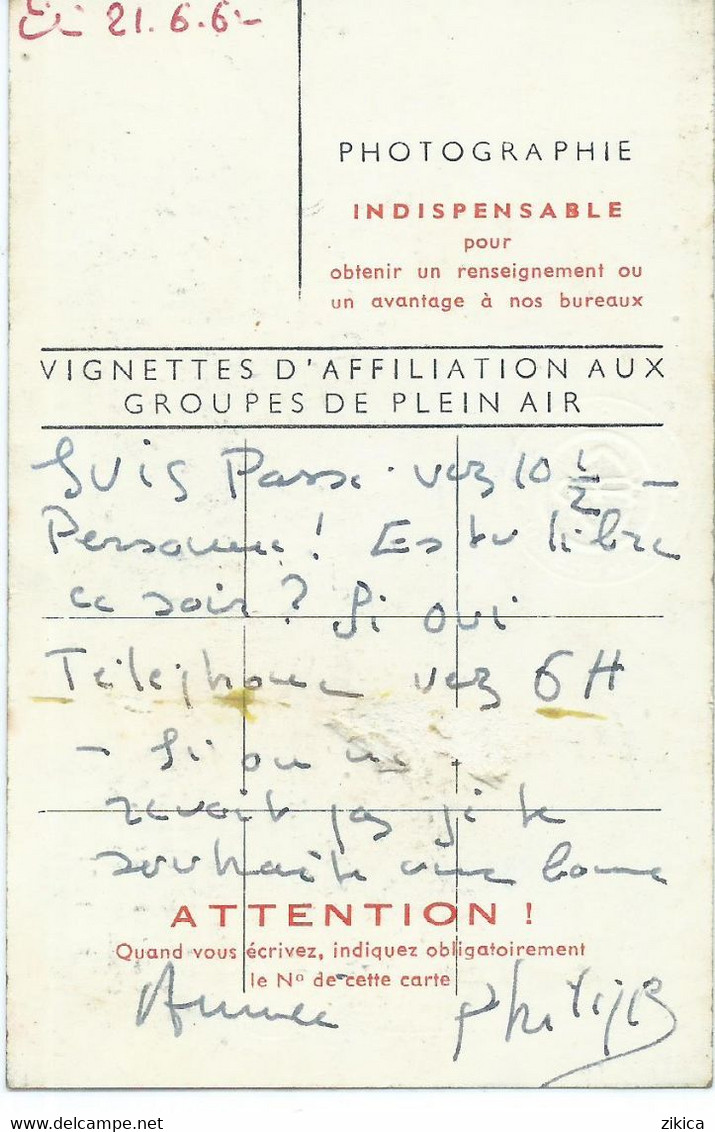 21.6.6
PHOTOGRAPHIE
INDISPENSABLE
pour
obtenir un renseignement ou
un avantage à nos bureaux
VIGNETTES D'AFFILIATION AUX
GROUPES DE PLEIN AIR
SUIS Passé vez 10 1/2 —
Personne ! Es tu libre
ce soir ? Si oui
Téléphone vez 6 H
- Si on
revoit pas je te
souhaite une bonne
ATTENTION !
Quand vous écrivez, indiquez obligatoirement
le No de cette carte
Année
delcampe.net
zikica